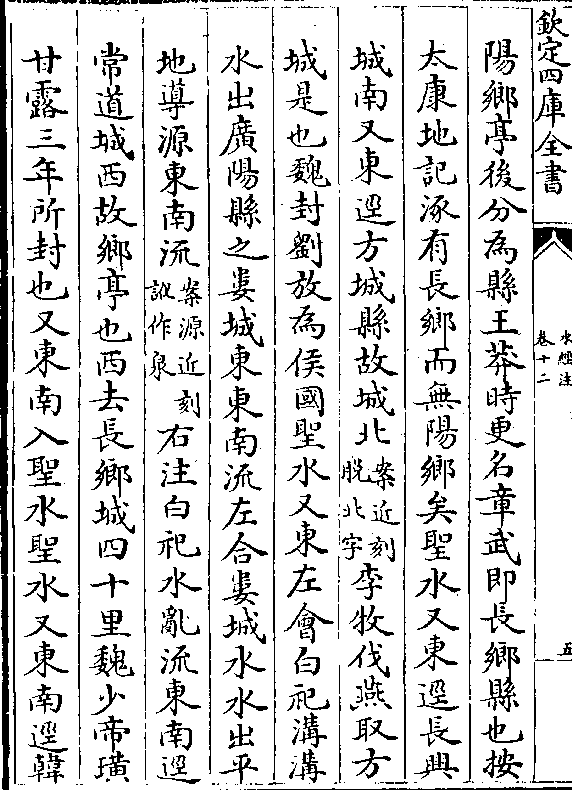 欽定四庫全書
水經注
卷十二
五
陽鄉亭後分為縣王莽時更名章武即長鄉縣也按
太康地記涿有長鄉而無陽鄉矣聖水又東逕長興
城南又東逕方城縣故城北案近刻脫北字李牧伐燕取方
城是也魏封劉放為侯國聖水又東左會白祀溝溝
水出廣陽縣之婁城東東南流左合婁城水水出平
地導源東南流案源近刻訛作泉右注白祀水亂流東南逕
常道城西故鄉亭也西去長鄉城四十里魏少帝璜
甘露三年所封也又東南入聖水聖水又東南逕韓